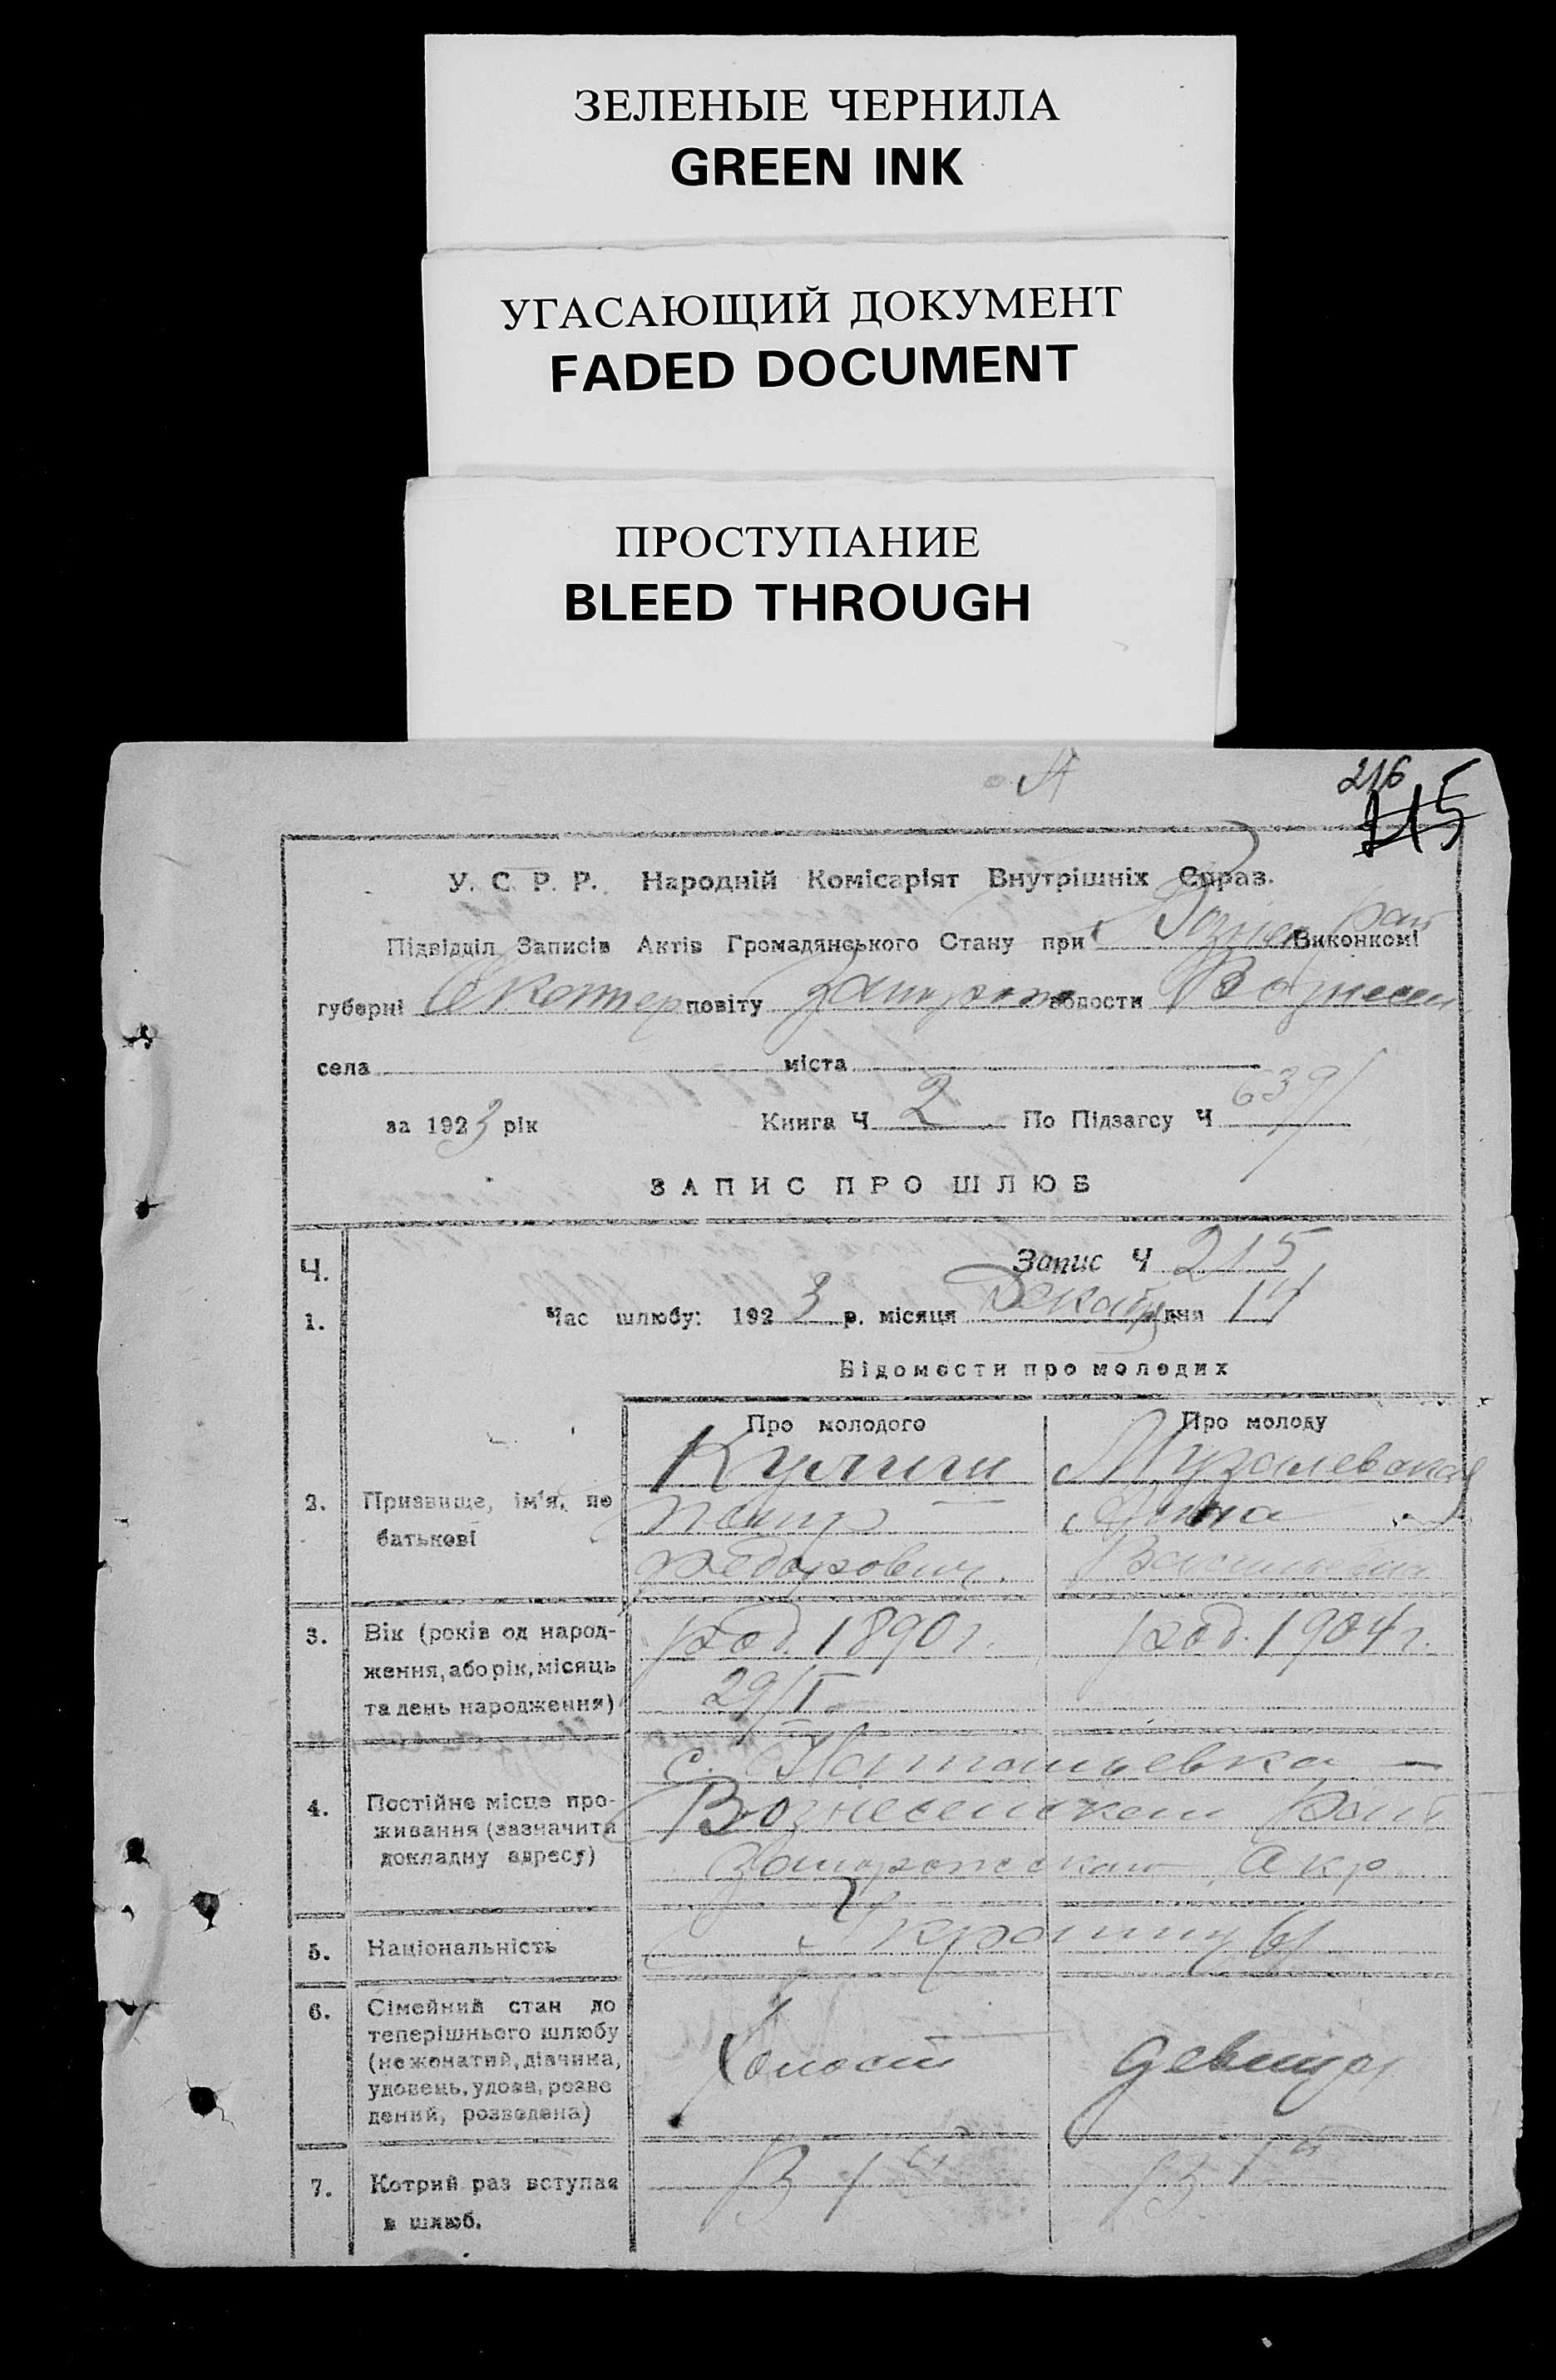 ЗЕЛЕНЫЕ ЧЕРНИЛА
GREEN INK
УГАСАЮЩИЙ ДОКУМЕНТ
FADED DOCUMENT
ПРОСТУПАНИЕ
BLEED THROUGH
216
215
У. С. Р. Р. Народній Комісаріят Внутрішніх Справ.
Підвідділ Записів Актів Громадянського Стану при Вознес Рай Виконкомі
губерні повіту Запорож волости Вознесен
села міста
за 1923 рік Книга Ч 2 По Підзагсу Ч 639
ЗАПИС ПРО ШЛЮБ
Ч. Запис Ч 215
1. Час шлюбу: 1923 р. місяця Декабр дня
Відомости про молодих
Про молодого Про молоду
Кулиш
2. Призвище, ім'я, по Петр Анна
батькові Федорович. Васильевна
3. Вік (років од народ- род. 1890 г. род. 1904 г.
ження, або рік, місяць 29/I
та день народження)
с. Наталььевка
4. Постійне місце про- Вознесенском Рай
живання (зазначити
докладну адресу) Запорожскаго Окр
5. Національність Украинцы
6. Сімейний стан до
теперішнього шлюбу
(нежонатий, дівчина, Холост девица
удовець, удова, розве
дений, розведена)
7. Котрий раз вступая В 1й В 1й
в шлюб.